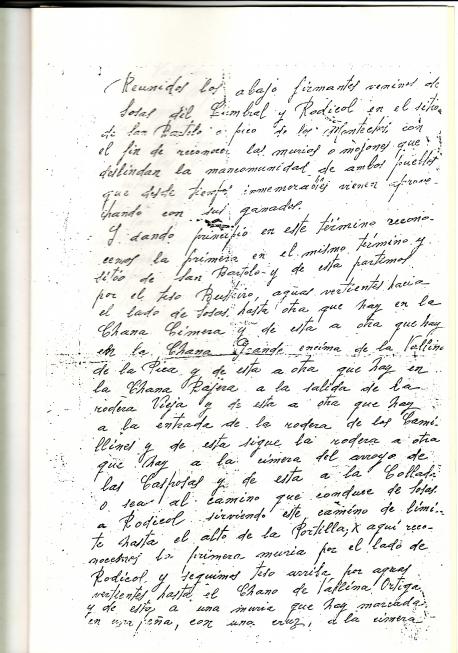 Reunidos los abajo firmantes vecinos de
Sosas del Cumbral y Rodicol en el sitio
de san Bartolo o pico de los Monteson, con
el fin de reconocer las murias o mojones que
deslindan la mancomunidad de ambos pueblos
que desde tiempos inmemorables vienen aprove-
chando con sus ganados.
Y dando principio en este término recono-
cemos la primera en el mismo término y
sitio de san Bartolo y de esta partimos
por el teso Busteiro, aguas vertientes hacia
el lado de Sosas hasta otra que hay en la
Chana Cimera y de esta a otra que hay
en la Chana Grande encima de la Valline
de la Pica y de esta a otra que hay en
la Chana Bajera a la salida de la
rodera Vieja y de esta a otra que hay
a la entrada de la rodera de los Cami-
llines y de esta sigue la rodera a otra
que hay a la cimera del arroyo de
las Casposas y de esta a la Collada
o sea al camino que conduse de Sosas
a Rodicol sirviendo este camino de limi-
te hasta el alto de la Portilla; X aquí reco-
nocemos la primera muria por el lado de
Rodicol y seguimos teso arriba por aguas
vertientes hasta el Chano de Vallina Ortiga
y de esta a una muria que hay marcada
en una peña, con una cruz, a la cimera